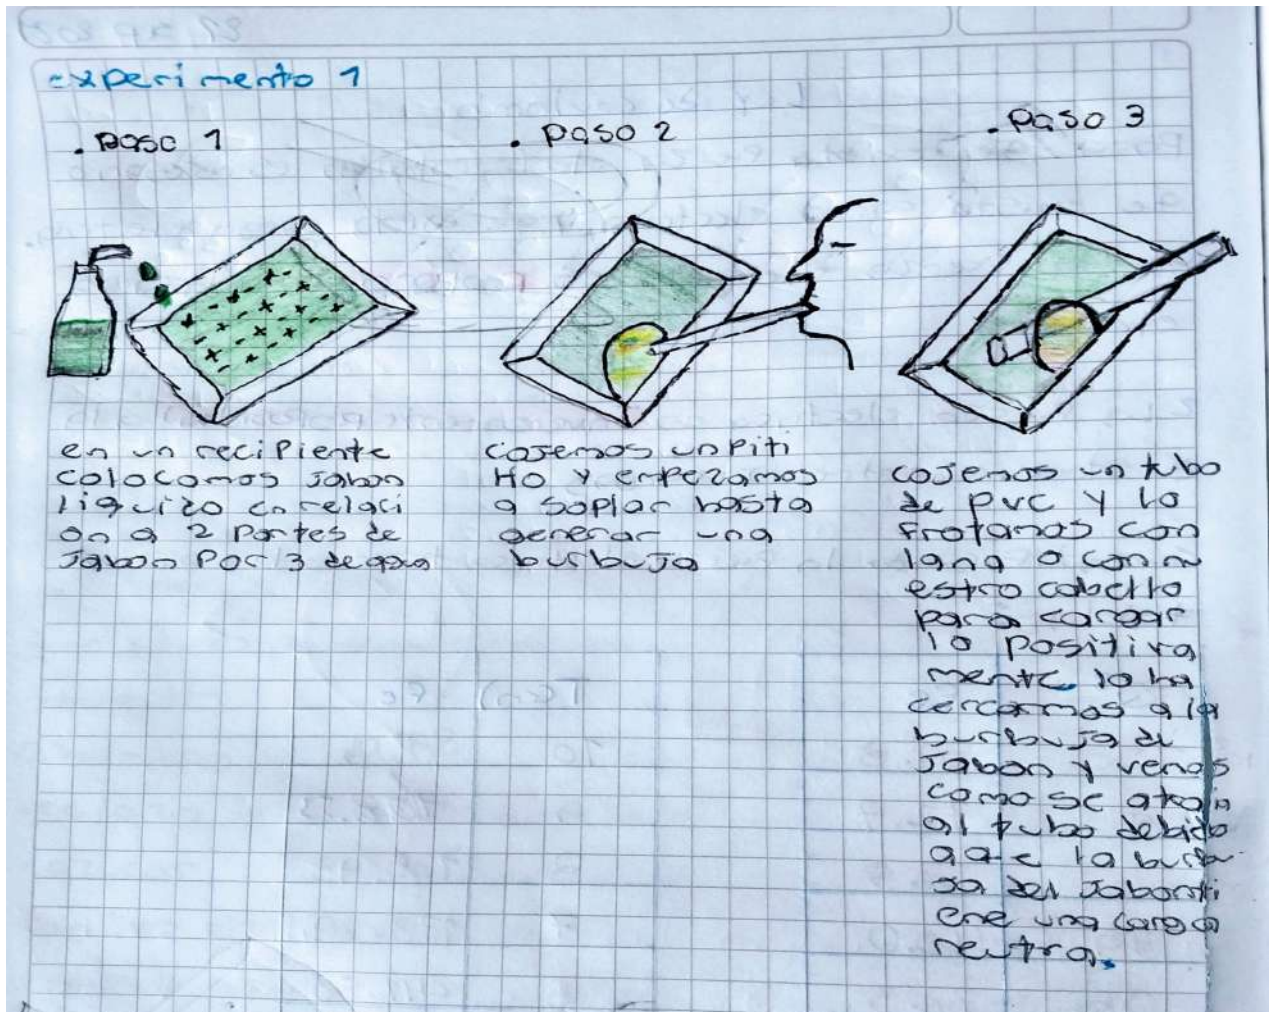 experimento 1
. paso 1
en un recipiente
colocamos jabon
liquido en relaci
on a 2 partes de
jabon por 3 de agua
. paso 2
cojemos un piti
llo y empezamos
a soplar hasta
generar una
burbuja
. paso 3
cojemos un tubo
de pvc y lo
frotamos con
lana o con nu
estro cabello
para cargar
lo positiva
mente lo ha
cercamos a la
burbuja de
jabon y vemos
como se atrai
al tubo debido
a que la burbu
ja del jabon ti
ene una carga
neutra.